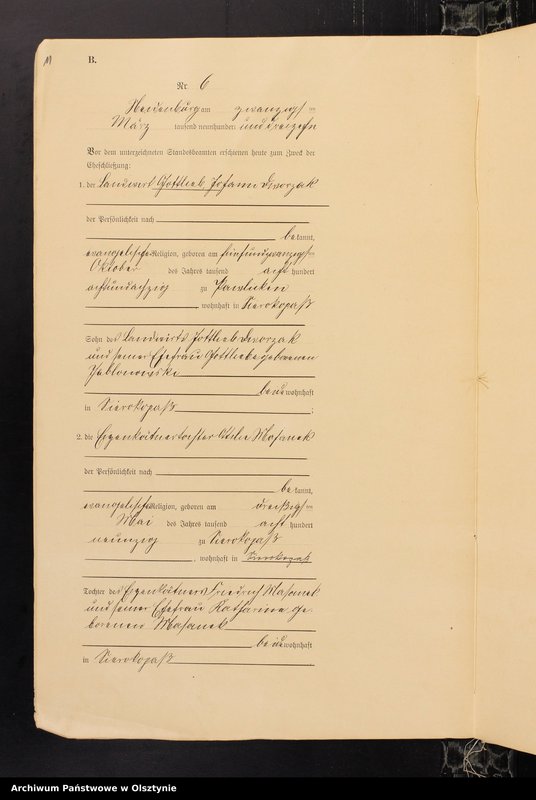 B.
Nr. 6
Neidenburg am zwanzigsten
März tausend neunhundert und dreizehn
Vor dem unterzeichneten Standesbeamten erschienen heute zum Zweck der
Eheschließung:
1. der Landwirt Gottlieb Johann Dworzak
der Persönlichkeit nach
bekannt,
evangelischer Religion, geboren am fünfundzwanzigsten
Oktober des Jahres tausend acht hundert
achtundachtzig zu Pawlicken
, wohnhaft in Sierokopaß
Sohn des Landwirts Gottlieb Dworzak
und seiner Ehefrau Gottliebe geborenen
Jablonowski
beide wohnhaft
in Sierokopaß ;
2. die Eigenkätnertochter Ottilie Masanek
der Persönlichkeit nach
bekannt,
evangelischer Religion, geboren am dreißigsten
Mai des Jahres tausend acht hundert
neunzig zu Sierokopaß
, wohnhaft in Sierokopaß
Tochter des Eigenkätners Friedrich Masanek
und seiner Ehefrau Katharine ge-
borenen Masanek
beide wohnhaft
in Sierokopaß
Archiwum Państwowe w Olsztynie